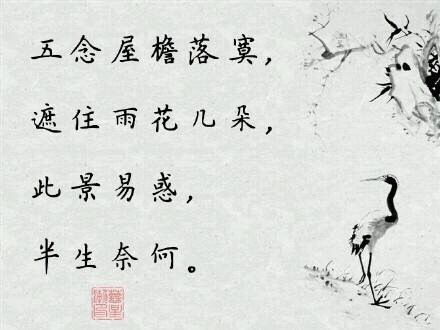 五念屋檐落寞，
遮住雨花几朵，
此景易惑，
半生奈何。